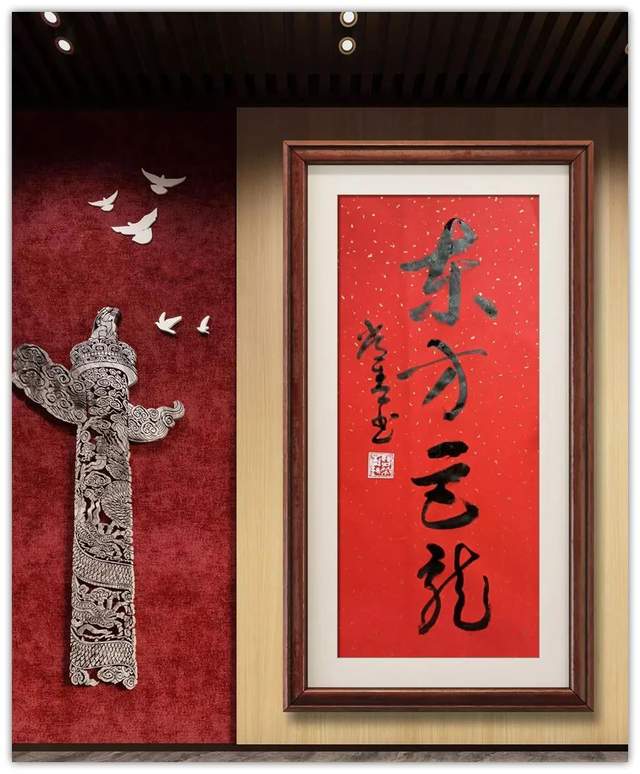 东方巨龙
书